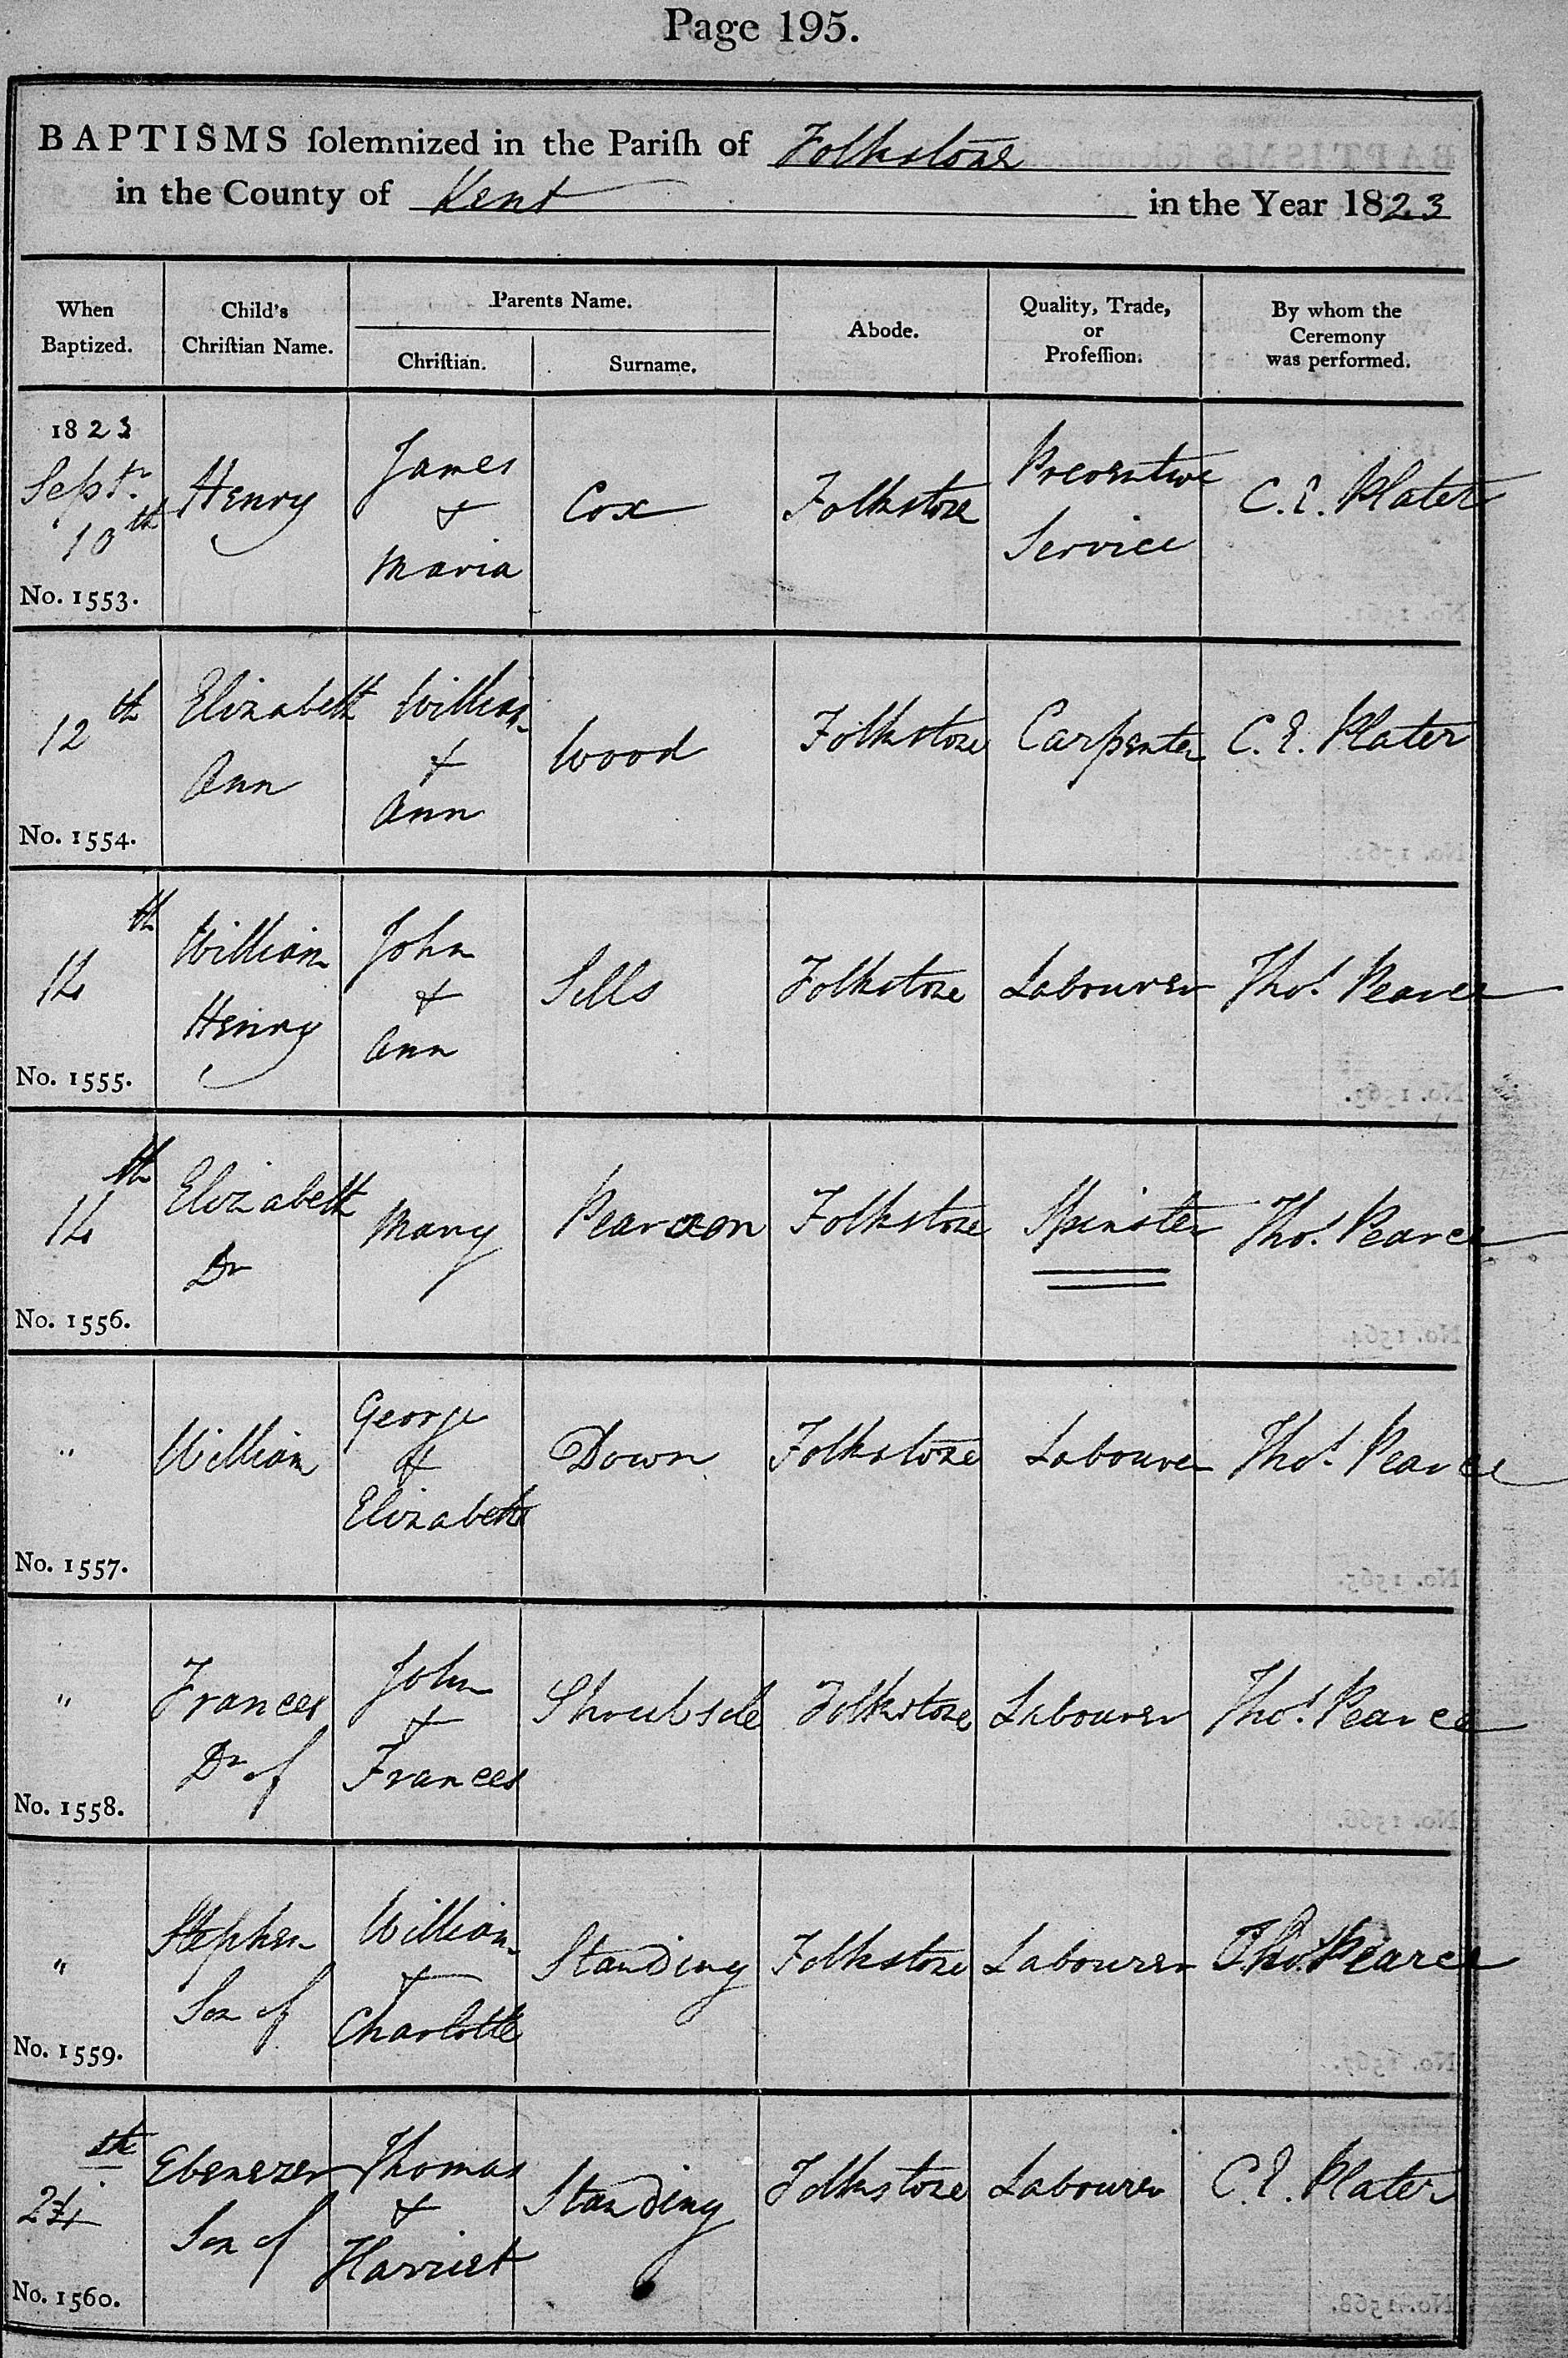 Page 195.
BAPTISMS solemnized in the Parish of Folkstone
in the County of Kent in the Year 1823
When Baptized. Child's Christian Name. Parents Name. Christian. Surname. Abode. Quality, Trade, or Profession. By whom the Ceremony was performed.
1823 Septr. 10th No. 1553. Henry James & Maria Cox Folkstone Preventive Service C. E. Plater
12th No. 1554. Elizabeth Ann William & Ann Wood Folkstone Carpenter C. E. Plater
14th No. 1555. William Henry John & Ann Sells Folkstone Labourer Thos. Pearce
14th No. 1556. Elizabeth Dr Mary Pearson Folkstone Spinster Thos. Pearce
" No. 1557. William George & Elizabeth Down Folkstone Labourer Thos. Pearce
" No. 1558. Frances Dr of John & Frances Shrubsole Folkstone Labourer Thos. Pearce
" No. 1559. Stephen Son of William & Charlotte Standing Folkstone Labourer Thos. Pearce
24th No. 1560. Ebenezer Son of Thomas & Harriet Standing Folkstone Labourer C. E. Plater